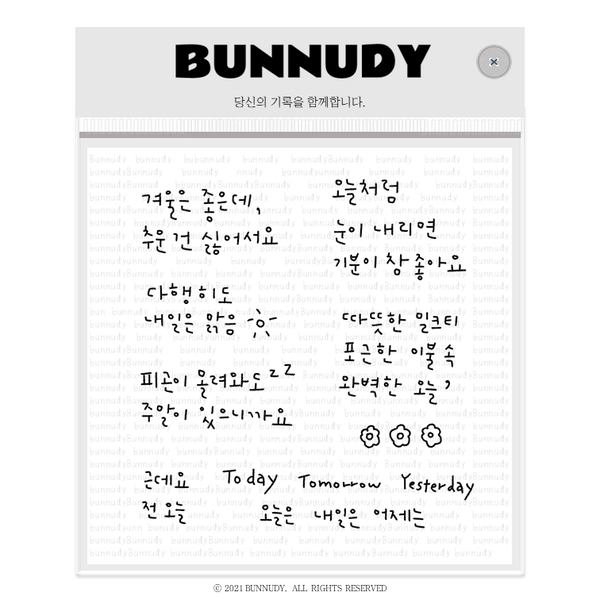 BUNNUDY
당신의 기록을 함께합니다.
겨울은 좋은데,
추운 건 싫어서요
오늘처럼
눈이 내리면
기분이 참 좋아요
다행히도
내일은 맑음
따뜻한 밀크티
포근한 이불 속
완벽한 오늘,
피곤이 몰려와도 zz
주말이 있으니까요
근데요
전 오늘
Today Tomorrow Yesterday
오늘은 내일은 어제는
© 2021 BUNNUDY. ALL RIGHTS RESERVED